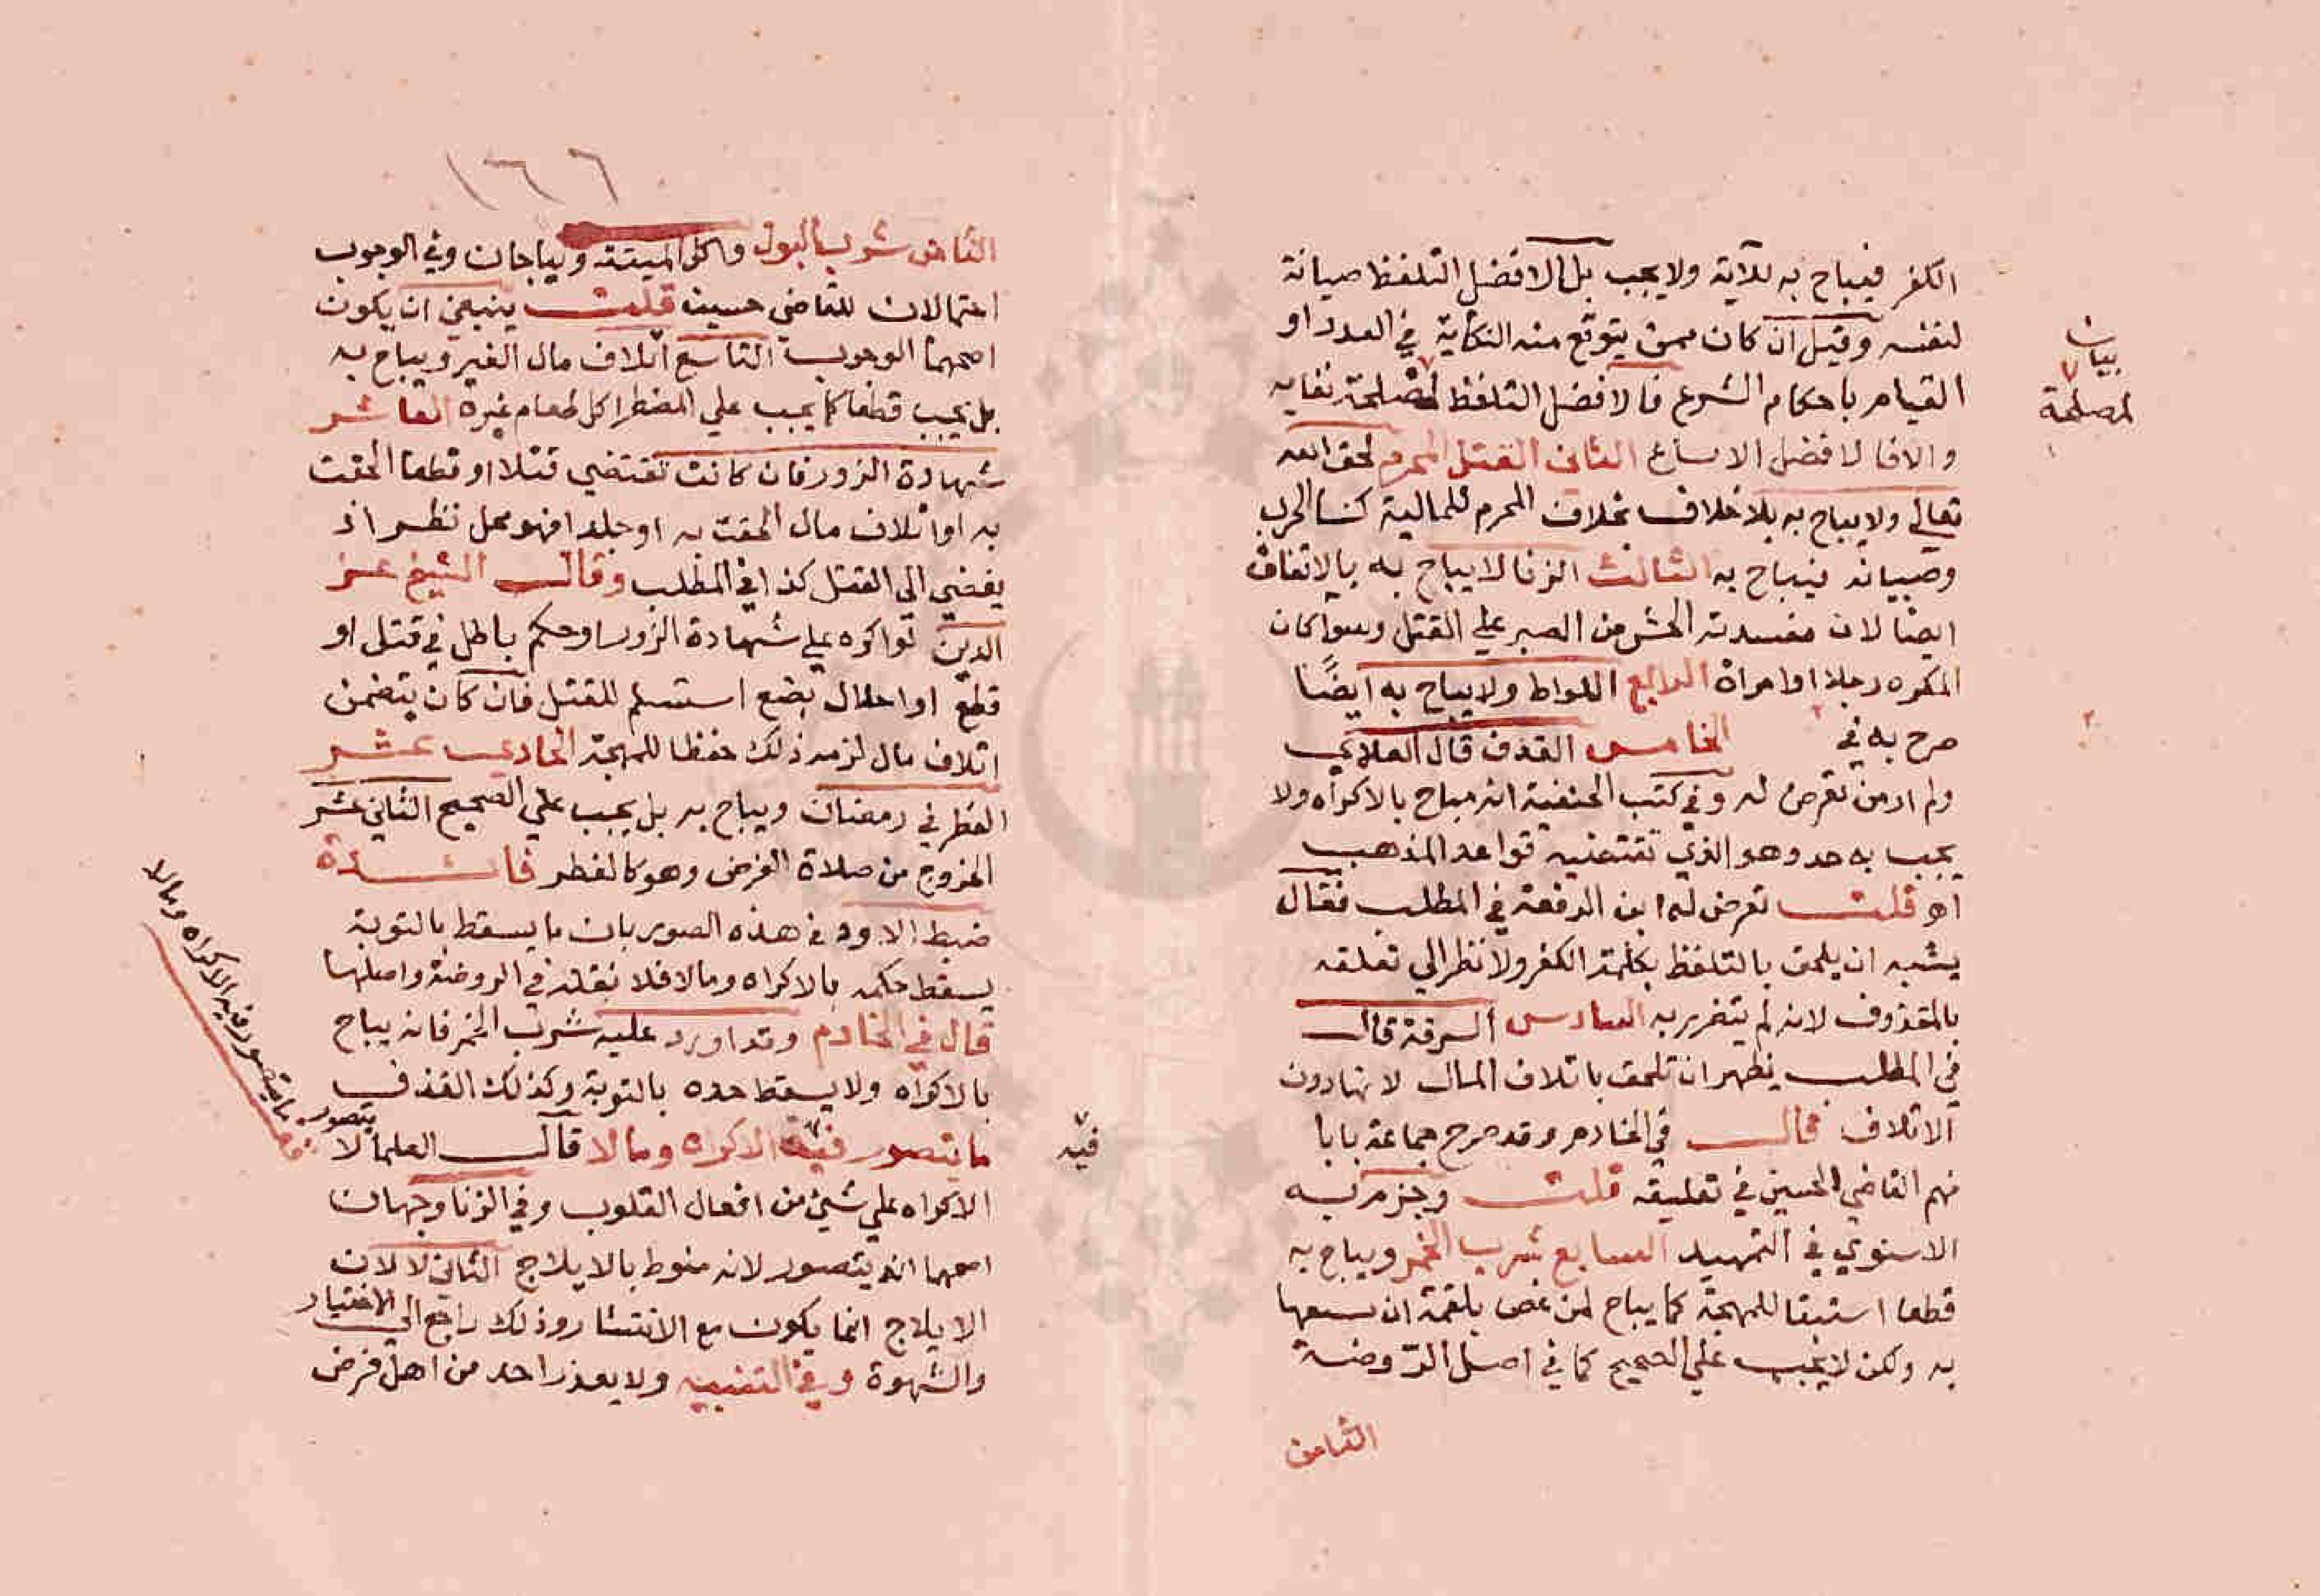 الكفر فيباح به للآية ولا يجب بل الافضل التلفظ صيانة
لنفسه وقيل ان كان ممن يتوقع منه النكاية في العدو او
القيام باحكام الشرع فالافضل التلفظ لمصلحة بقايه
والا فالافضل الامتناع الثاني القتل المحرم لحق الله
تعالى ولا يباح به بلا خلاف بخلاف المحرم للمالية كنسا الحرب
وصبيانه فيباح به الثالث الزنا لا يباح به بالاتفاق
ايضا لان مفسدته افحش من الصبر علي القتل وسوا كان
المكره رجلا او امراة الرابع اللواط ولا يباح به ايضًا
صرح به في الخامس القذف قال العلاي
ولم ار من تعرض له وفي كتب الحنفية انه يباح بالاكراه ولا
يجب به حد وهو الذي تقتضيه قواعد المذهب
اه قلت تعرض له ابن الرفعة في المطلب فقال
يشبه ان يلحق بالتلفظ بكلمة الكفر ولا نظر الي تعلقه
بالمقذوف لانه لم يتضرر به السادس السرقة قال
في المطلب يظهر ان تلحق باتلاف المال لانها دون
الاتلاف قال في الخادم وقد صرح جماعة بابا
منهم القاضي الحسين في تعليقه قلت وجزم به
الاسنوي في التمهيد السابع شرب الخمر ويباح به
قطعا استبقا للمهجة كما يباح لمن غص بلقمة ان يسيغها
به ولكن لا يجب علي الصحيح كما في اصل الروضة
الثامن
بيان
لمصلحة
١٦٦
الثامن شرب البول واكل الميتة ويباحان وفي الوجوب
احتمالان للقاضي حسين قلت ينبغي ان يكون
اصحهما الوجوب التاسع اتلاف مال الغير ويباح به
بل يجب قطعا كما يجب علي المضطر اكل طعام غيره العاشر
شهادة الزور فان كانت تقتضي قتلا او قطعا الحقت
به او اتلاف مال الحقت به او جلدا فهو محل نظر اذ
يفضي الى القتل كذا في المطلب وقال الشيخ عز
الدين لو اكره علي شهادة الزور او حكم باطل في قتل او
قطع او احلال بضع استسلم للقتل فان كان يتضمن
اتلاف مال لزمه ذلك حفظا للمهجة الحادي عشر
الفطر في رمضان ويباح به بل يجب علي الصحيح الثاني عشر
الخروج من صلاة الفرض وهو كالفطر فائدة
ضبط الاودني هذه الصور بان ما يسقط بالتوبة
يسقط حكمه بالاكراه وما لا فلا نقله في الروضة واصلها
قال في الخادم وقد اورد عليه شرب الخمر فانه يباح
بالاكراه ولا يسقط حده بالتوبة وكذلك القذف
ما يتصور فيه الاكراه وما لا قال العلما لا يتصور
الاكراه علي شيئ من افعال القلوب وفي الزنا وجهان
اصحهما انه يتصور لانه منوط بالايلاج الثاني لا لان
الايلاج انما يكون مع الانتشار وذلك راجع الي الاختيار
والشهوة وفي التنبيه ولا يعذر احد من اهل فرض
فيه
ما يتصور فيه الاكراه وما لا